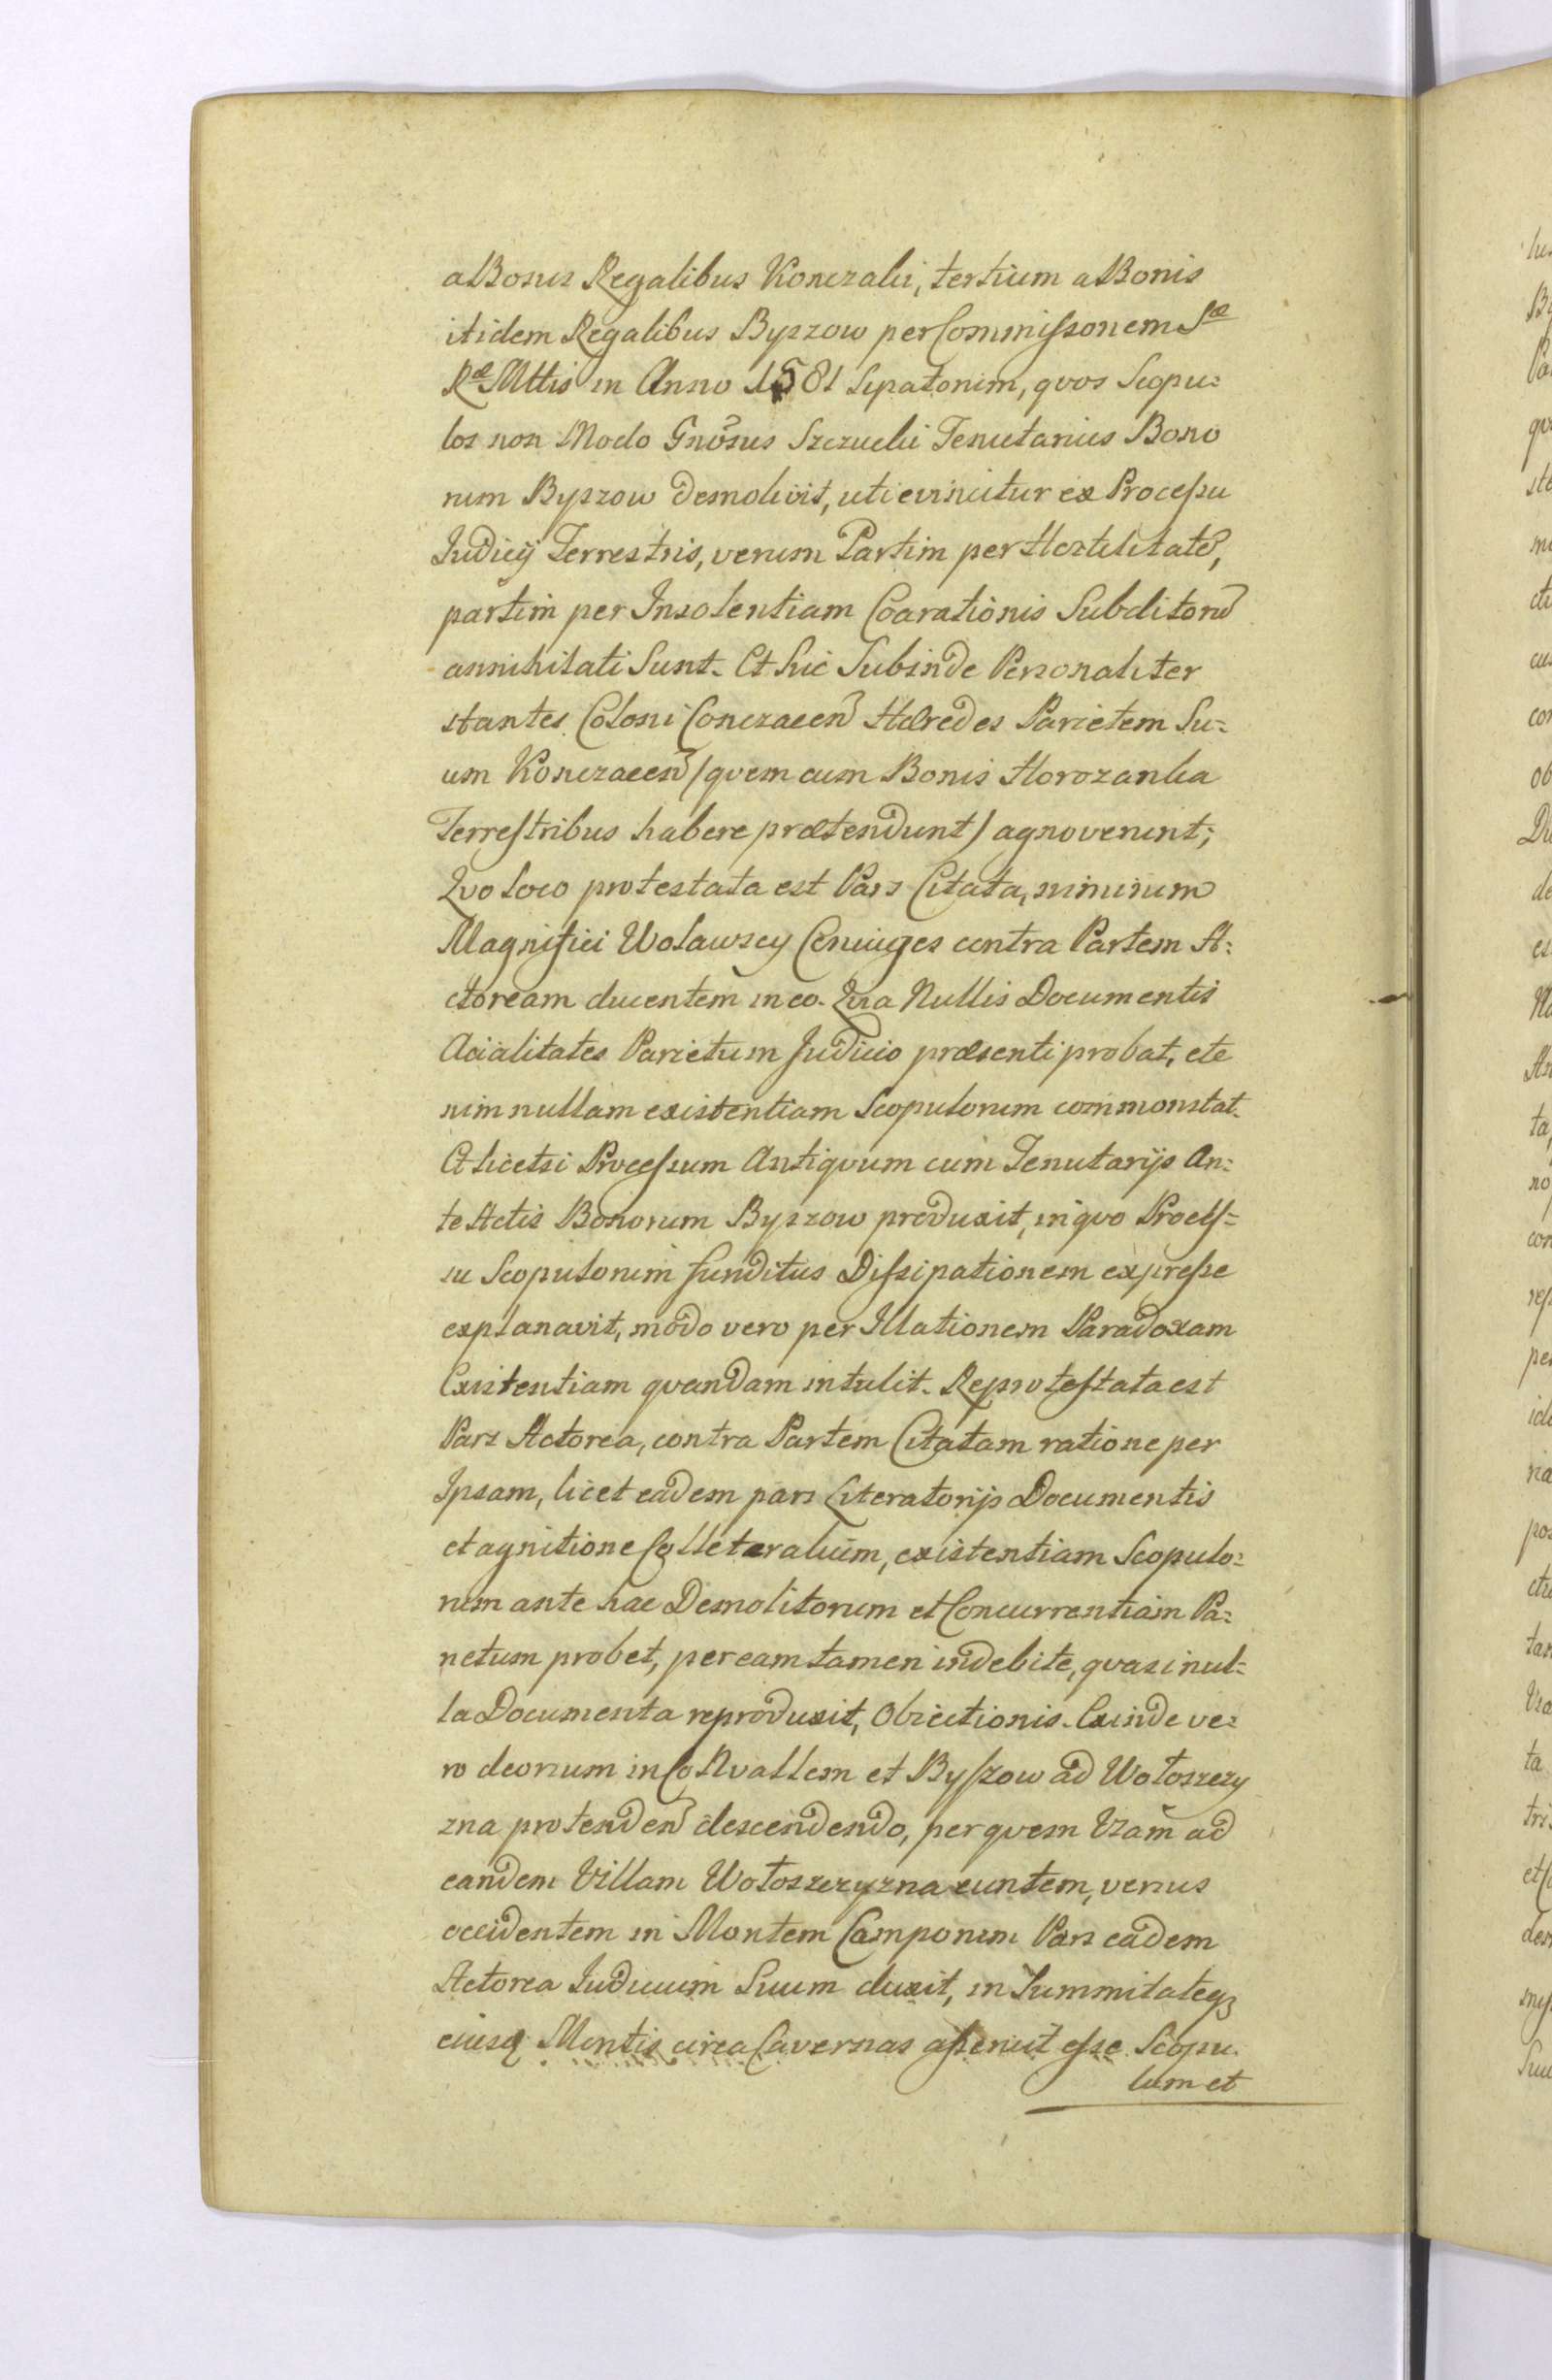 a Bonis Regalibus Konczaki, tertium a Bonis
itidem Regalibus Byszow per Commissonem Sæ
Ræ Mttis in Anno 1581 sipatorum, qvos Scopu=
los non Modo Gnōsus Szczucki Tenutarius Bono
rum Byszow demolivit, uti evincitur ex Processu
Judicij Terrestris, verum Partim per Hostilitatē,
partim per Insolentiam Coarationis Subditorū
annihilati Sunt. Et hic Subinde Personaliter
stantes Coloni Conczacen̄ Hæredes Parietem Su=
um Konczacen̄ /qvem cum Bonis Horozanka
Terrestribus habere prætendunt/ agnoverunt;
Qvo loco protestata est Pars Citata, nimirum
Magnifici Wolawscy Coniuges contra Partem A=
ctoream ducentem in eo. Qvia Nullis Documentis
Acialitates Parietum Judicio præsenti probat, ete
nim nullam existentiam Scopulorum commonstat.
Et licetsi Processum Antiqvum cum Tenutarijs An=
te Actis Bonorum Byszow produxit, in qvo Process=
su Scopulorum funditus Dissipationem expresse
explanavit, modo vero per Illationem Paradoxam
Existentiam qvandam intulit. Reprotestata est
Pars Actorea, contra Partem Citatam ratione per
Ipsam, licet eadem pars Literatorijs Documentis
et agnitione Colleteralium, existentiam Scopulo=
rum ante hac Demolitorum et Concurrentiam Pa=
rietum probet, per eam tamen indebite, qvasi nul=
la Documenta reproduxit, Obiectionis. Exinde ve=
ro deorsum in Convallem et Byszow ad Wołoszczy
zna protenden̄ descendendo, per qvem Viam ad
eandem Villam Wołoszczyzna euntem, versus
occidentem in Montem Camporum Pars eadem
Actorea Iudicium Suum duxit, in Summitateq3
eiusq Montis circa Cavernas asseruit esse Scopu.
lum et